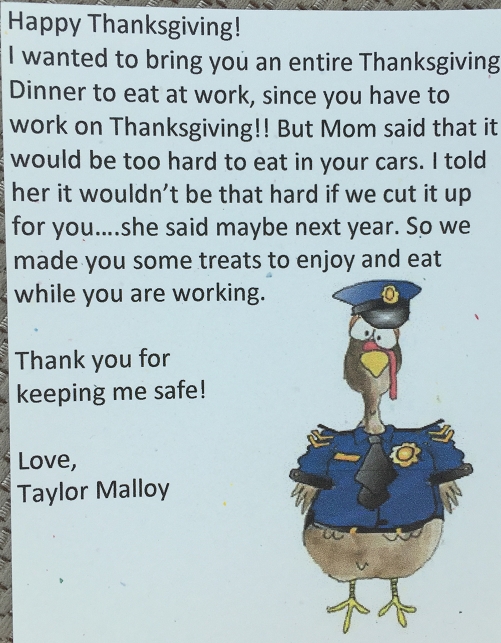 Happy Thanksgiving!
I wanted to bring you an entire Thanksgiving
Dinner to eat at work, since you have to
work on Thanksgiving!! But Mom said that it
would be too hard to eat in your cars. I told
her it wouldn't be that hard if we cut it up
for you....she said maybe next year. So we
made you some treats to enjoy and eat
while you are working.
Thank you for
keeping me safe!
Love,
Taylor Malloy